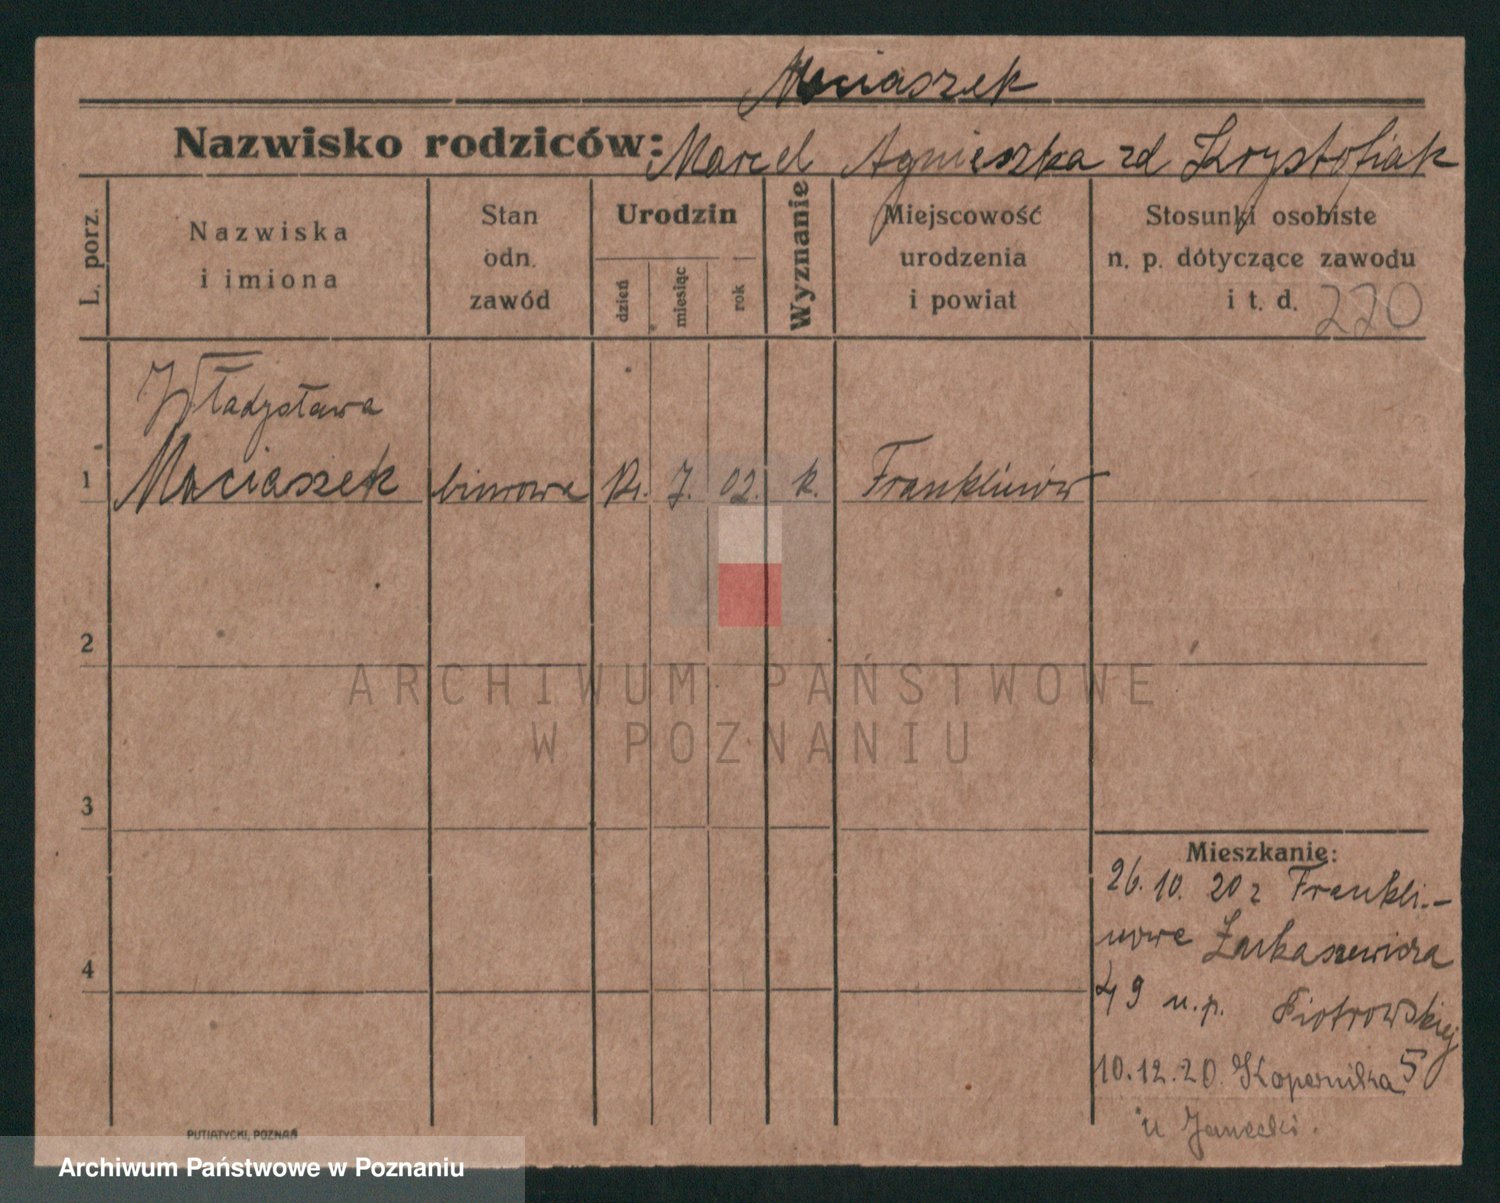 Maciaszek
Nazwisko rodziców: Marcel Agnieszka zd Krystofiak
L. porz.
Nazwiska
i imiona
Stan
odn.
zawód
Urodzin
dzień
miesiąc
rok
Wyznanie
Miejscowość
urodzenia
i powiat
Stosunki osobiste
n. p. dotyczące zawodu
i t. d. 220
Władysława
1 Maciaszek biurowa 7. 02. k. Franklinów
2
3
4
Mieszkanie:
26. 10. 20 z Frankli-
nowa
49 u. p. Piotrowskiej
10. 12. 20. Kopernika 5
u Janecki.
PUTIATYCKI, POZNAŃ
ARCHIWUM PAŃSTWOWE
W POZNANIU
Archiwum Państwowe w Poznaniu